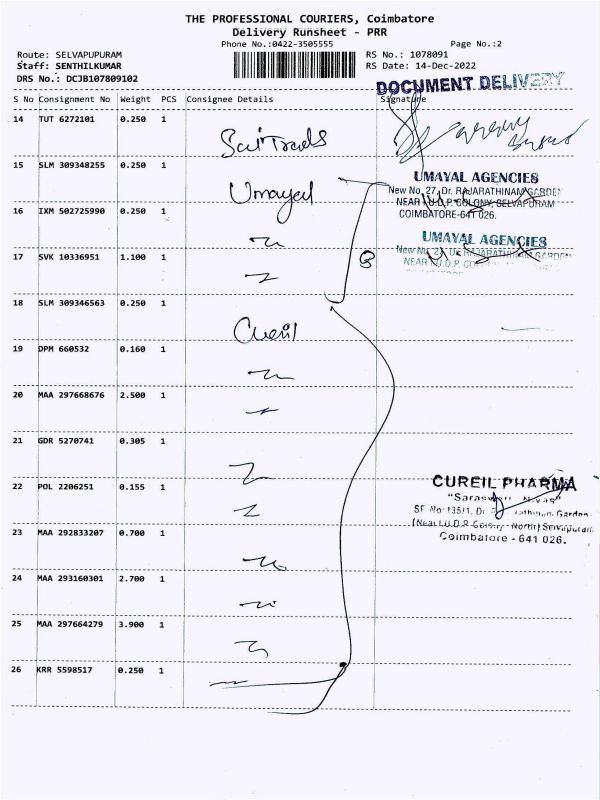 THE PROFESSIONAL COURIERS, Coimbatore
Delivery Runsheet - PRR
Phone No.:0422-3505555
Page No.:2
Route: SELVAPUPURAM
RS No.: 1078091
Staff: SENTHILKUMAR
RS Date: 14-Dec-2022
DRS No.: DCJB107809102
DOCUMENT DELIVERY
S No Consignment No Weight PCS Consignee Details Signature
14 TUT 6272101 0.250 1
15 SLM 309348255 0.250 1 Umayal
UMAYAL AGENCIES
New No. 27, Dr. RAJARATHINAM GARDEN
NEAR I.U.D.P. COLONY, SELVAPURAM
COIMBATORE-641 026.
16 IXM 502725990 0.250 1
UMAYAL AGENCIES
17 SVK 10336951 1.100 1
18 SLM 309346563 0.250 1 Cureil
19 DPM 660532 0.160 1
20 MAA 297668676 2.500 1
21 GDR 5270741 0.305 1
22 POL 2206251 0.155 1
CUREIL PHARMA
Coimbatore - 641 026.
23 MAA 292833207 0.700 1
24 MAA 293160301 2.700 1
25 MAA 297664279 3.900 1
26 KRR 5598517 0.250 1